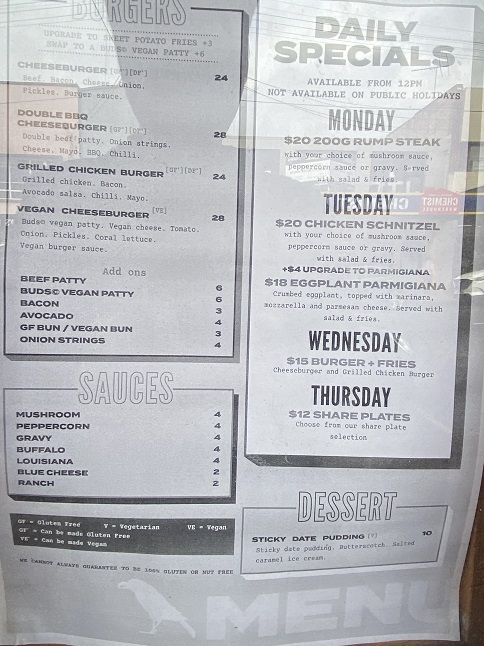 BURGERS
UPGRADE TO SWEET POTATO FRIES +3
SWAP TO A BUDS© VEGAN PATTY +6
CHEESEBURGER [GF'][DF'] 24
Beef. Bacon. Cheese. Onion.
Pickles. Burger sauce.
DOUBLE BBQ
CHEESEBURGER [GF'][DF'] 28
Double beef patty. Onion strings.
Cheese. Mayo. BBQ. Chilli.
GRILLED CHICKEN BURGER [GF'][DF'] 24
Grilled chicken. Bacon.
Avocado salsa. Chilli. Mayo.
VEGAN CHEESEBURGER [VE] 28
Buds© vegan patty. Vegan cheese. Tomato.
Onion. Pickles. Coral lettuce.
Vegan burger sauce.
Add ons
BEEF PATTY 6
BUDS© VEGAN PATTY 6
BACON 3
AVOCADO 4
GF BUN / VEGAN BUN 3
ONION STRINGS 4
SAUCES
MUSHROOM 4
PEPPERCORN 4
GRAVY 4
BUFFALO 4
LOUISIANA 4
BLUE CHEESE 2
RANCH 2
GF = Gluten Free V = Vegetarian VE = Vegan
GF' = Can be made Gluten Free
VE' = Can be made Vegan
WE CANNOT ALWAYS GUARANTEE TO BE 100% GLUTEN OR NUT FREE
DAILY
SPECIALS
AVAILABLE FROM 12PM
NOT AVAILABLE ON PUBLIC HOLIDAYS
MONDAY
$20 200G RUMP STEAK
with your choice of mushroom sauce,
peppercorn sauce or gravy. Served
with salad & fries
TUESDAY
$20 CHICKEN SCHNITZEL
with your choice of mushroom sauce,
peppercorn sauce or gravy. Served
with salad & fries.
+$4 UPGRADE TO PARMIGIANA
$18 EGGPLANT PARMIGIANA
Crumbed eggplant, topped with marinara,
mozzarella and parmesan cheese. Served with
salad & fries.
WEDNESDAY
$15 BURGER + FRIES
Cheeseburger and Grilled Chicken Burger
THURSDAY
$12 SHARE PLATES
Choose from our share plate
selection
CHEMIST
DESSERT
STICKY DATE PUDDING [V] 10
Sticky date pudding. Butterscotch. Salted
caramel ice cream.
MENU